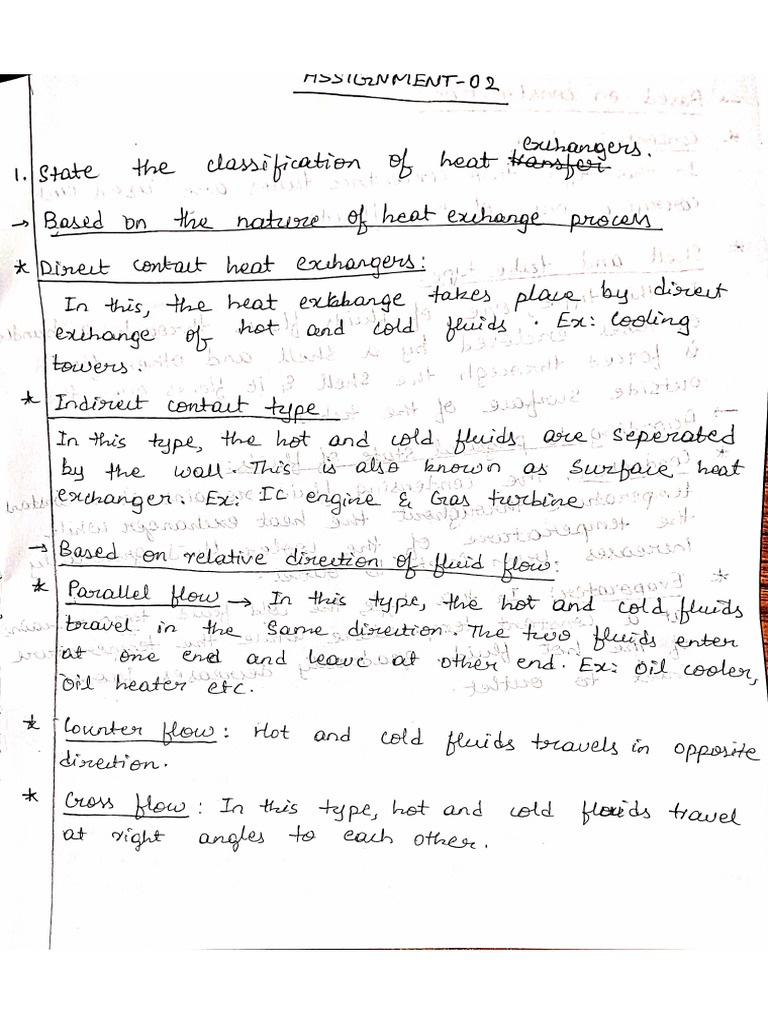 ASSIGNMENT-02
1. State the classification of heat transfer exchangers.
→ Based on the nature of heat exchange process
* Direct contact heat exchangers:
In this, the heat exchange takes place by direct
exchange of hot and cold fluids. Ex: Cooling
towers.
* Indirect contact type
In this type, the hot and cold fluids are seperated
by the wall. This is also known as Surface heat
exchanger. Ex: IC engine & Gas turbine
→ Based on relative direction of fluid flow:
* Parallel flow → In this type, the hot and cold fluids
travel in the same direction. The two fluids enter
at one end and leave at other end. Ex: oil cooler,
oil heater etc.
* Counter flow: Hot and cold fluids travels in opposite
direction.
* Cross flow: In this type, hot and cold fluids travel
at right angles to each other.